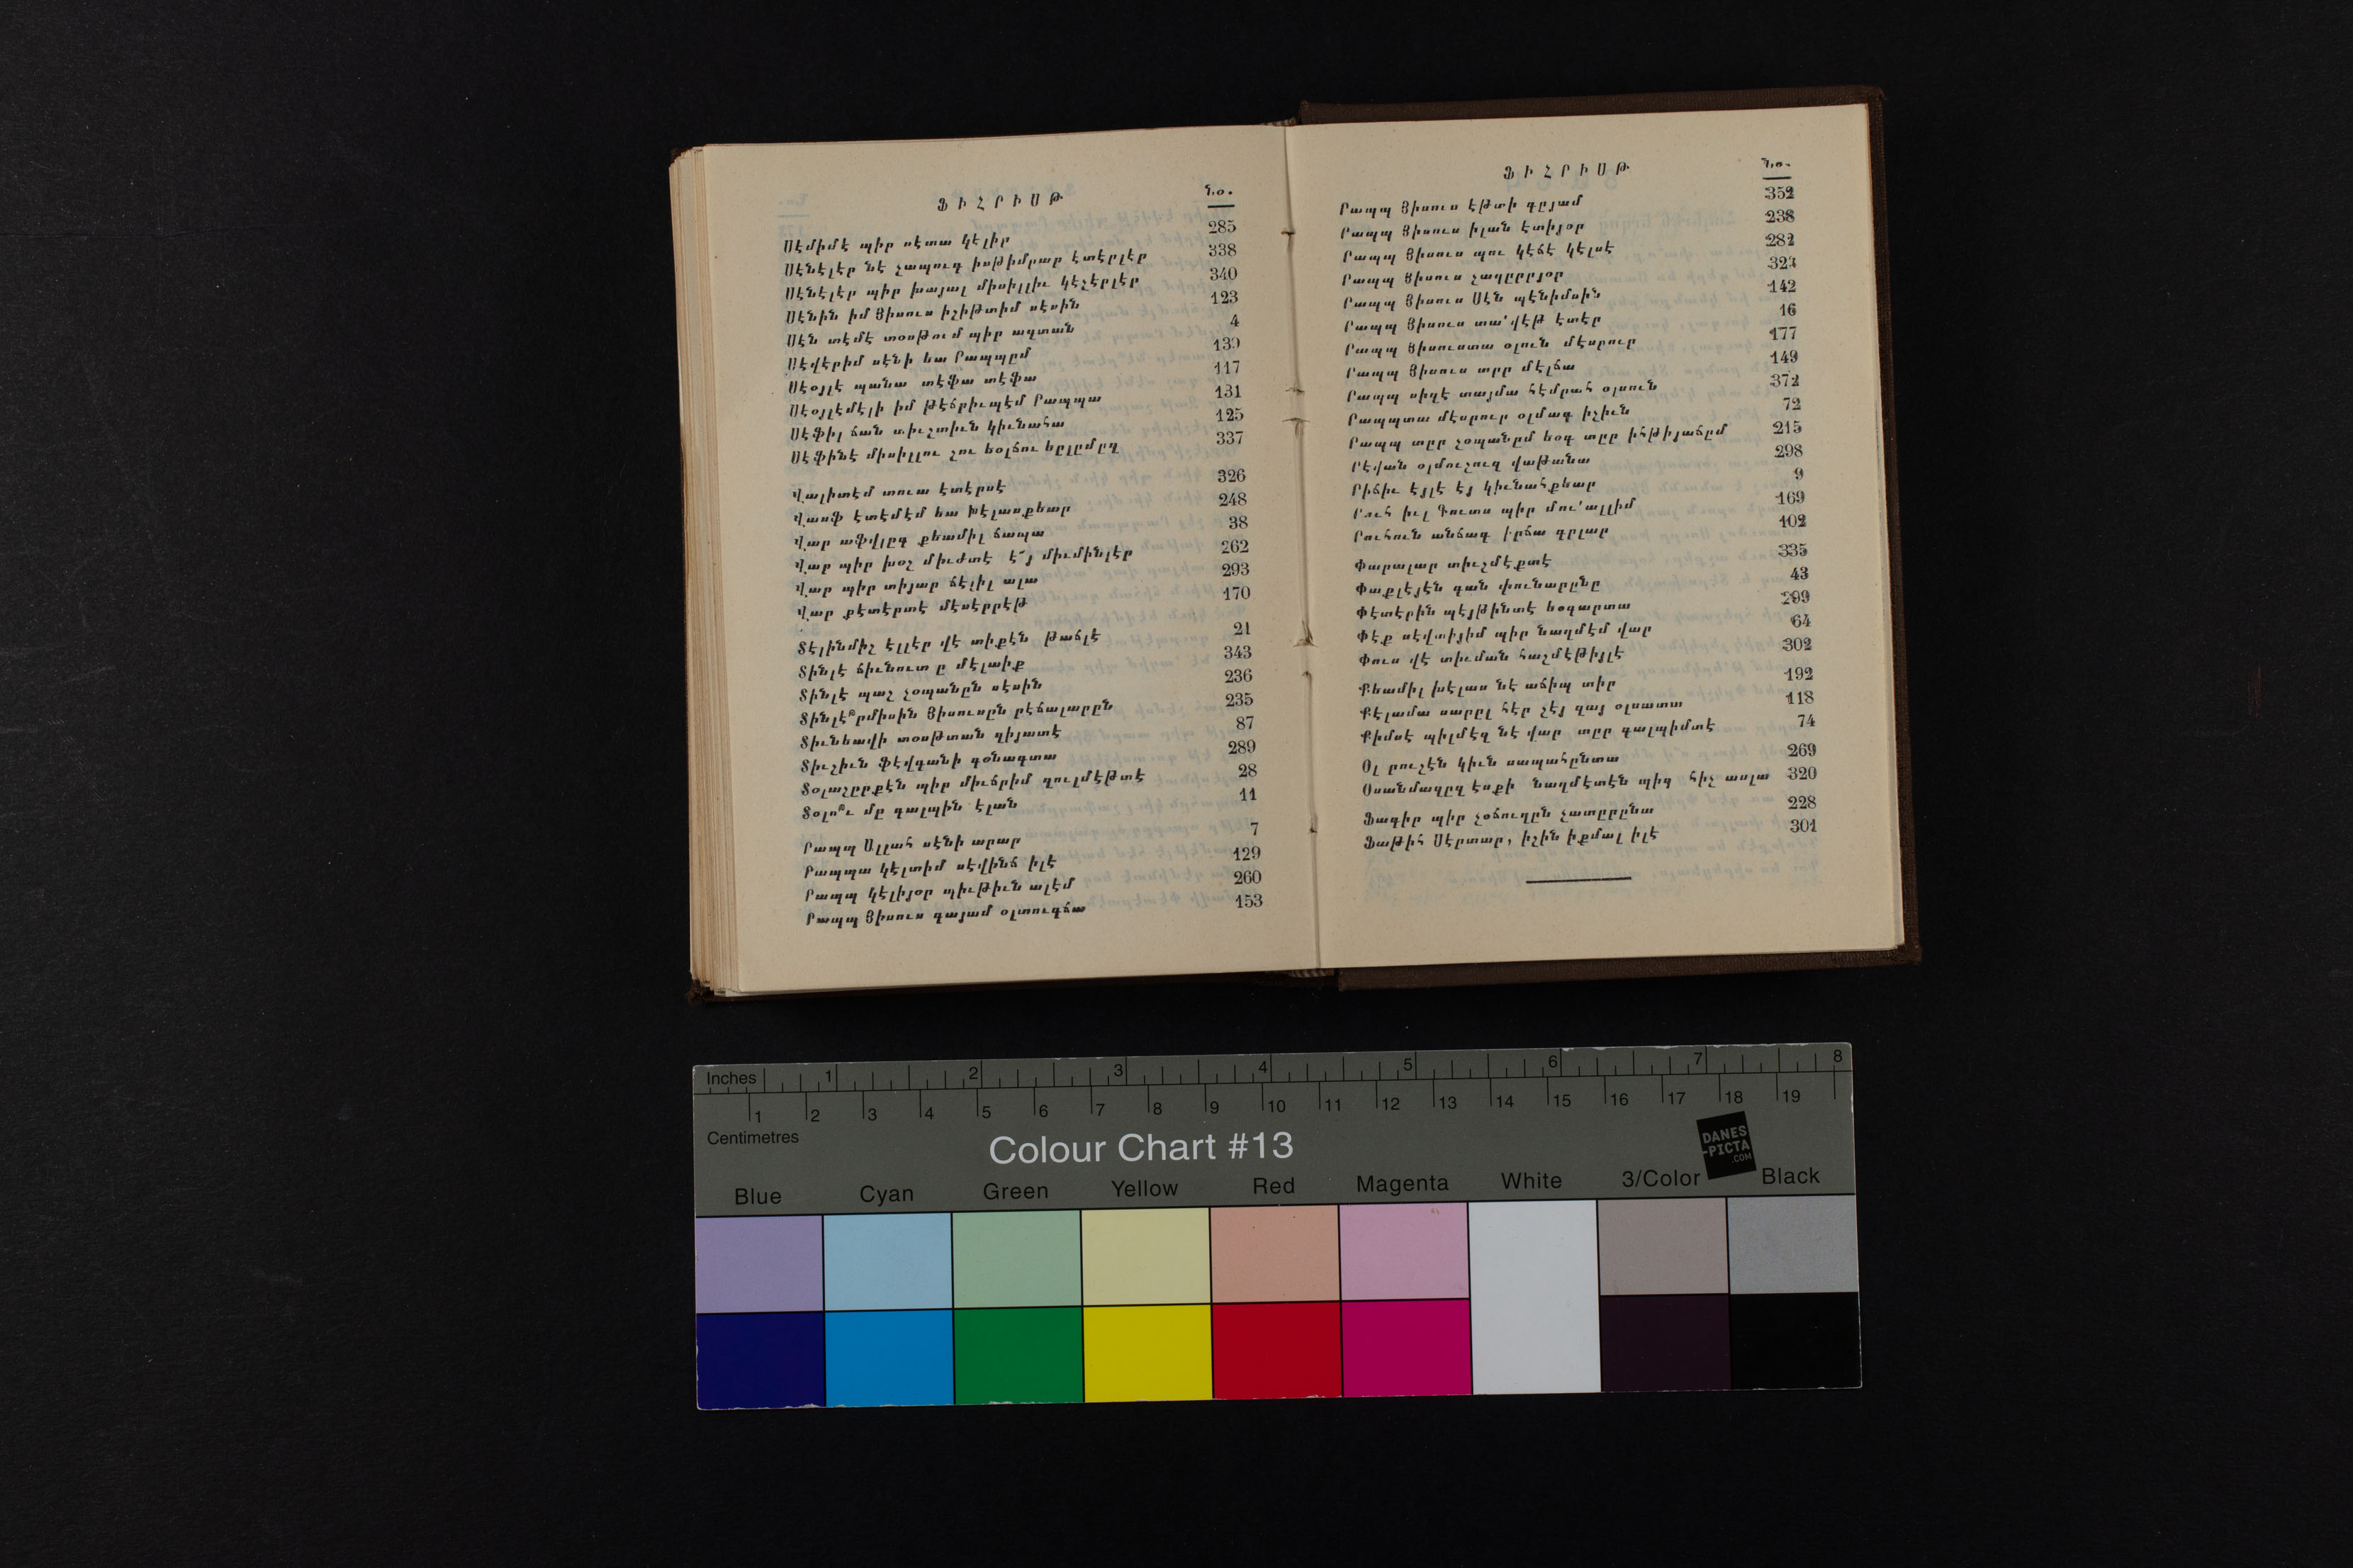 ՖԻՀՐԻՍԹ
Նօ.
Սէմիմէ պիր սէտա կէլիր 285
Սէնէլէր նէ չապուգ իսթիմրար էտէրլէր 338
Սէնէլէր պիր խայալ միսիլլիւ կէչէրլէր 340
Սէնին իմ Յիսուս իշիթտիմ սէսին 123
Սէն տէմէ տօսթում պիր ազտան 4
Սէվէրիմ սէնի եա Րապպըմ 139
Սէօյլէ պանա տէֆա տէֆա 117
Սէօյլէմէլի իմ թէճրիւպէմ Րապպա 131
Սէֆիլ ճան տիւշտիւն կիւնահա 125
Սէֆինէ միսիլլու շու եօլճու եըլըմըզ 337
Վալիտէմ տուա էտէրսէ 326
Վասֆ էտէմէմ եա խէլասքեար 248
Վար աֆվլըգ քեամիլ ճապա 38
Վար պիր խօշ միւժտէ է՜յ միւմինլէր 262
Վար պիր տիյար ճէլիլ ալա 293
Վար քէտէրտէ մէսէրրէթ 170
Տէլինմիշ էլլէր վէ տիքէն թաճլէ 21
Տինլէ ճիւնուտ ը մէլաիք 343
Տինլէ պաշ չօպանըն սէսին 236
Տինլէ՞րմիսին Յիսուսըն րէճալարըն 235
Տիւնեավի տօսթտան զիյատէ 87
Տիւշիւն ֆէվգանի գօնագտա 289
Տօլաշըրքէն պիր միւճրիմ զուլմէթտէ 28
Տօլո՞ւ մը գալպին էլան 11
Րապպ Ալլահ սէնի արար 7
Րապպա կէլտիմ սէվինճ իլէ 129
Րապպ կէլիյօր պիւթիւն ալէմ 260
Րապպ Յիսուս գայամ օլտուգճա 153
ՖԻՀՐԻՍԹ
Նօ.
Րապպ Յիսուս էթտի գըյամ 352
Րապպ Յիսուս իլան էտիյօր 238
Րապպ Յիսուս պու կէճէ կէլսէ 282
Րապպ Յիսուս չաղըրըյօր 323
Րապպ Յիսուս Սէն պէնիմսին 142
Րապպ Յիսուս տա՛վէթ էտէր 16
Րապպ Յիսուստա օլուն մէսրուր 177
Րապպ Յիսուս տըր մէլճա 149
Րապպ սիզէ տայմա հէմրահ օլսուն 372
Րապպտա մէսրուր օլմագ իչիւն 72
Րապպ տըր չօպանըմ եօգ տըր իհթիյաճըմ 215
Րէվան օլմուշուզ վաթանա 298
Րիճիւ էյլէ էյ կիւնահքեար 9
Րուհ իւլ Գուտս պիր մու՛ալլիմ 169
Րուհուն անճագ իրճա գըլար 102
Փարալար տիւշմէքտէ 335
Փաքլէյէն գան փունարընը 43
Փէտէրին պէյթինտէ եօգարտա 299
Փէք սէվտիյիմ պիր նաղմէմ վար 64
Փուս վէ տիւման հաշմէթիյլէ 302
Քեամիլ խէլաս նէ աճիպ տիր 192
Քէլամա սարըլ հէր շէյ զայ օլսատա 118
Քիմսէ պիլմէզ նէ վար տըր գալպիմտէ 74
Օլ րուշէն կիւն սապահընտա 269
Օսանմազըզ էսքի նաղմէտէն պիզ հիչ ասլա 320
Ֆագիր պիր չօճուղըն չատըրընա 228
Ֆաթիհ Սէրտար, իշին իքմալ իլէ 301
Inches 1 2 3 4 5 6 7 8
1 2 3 4 5 6 7 8 9 10 11 12 13 14 15 16 17 18 19
Centimetres
Colour Chart #13
DANES
-PICTA
.COM
Blue Cyan Green Yellow Red Magenta White 3/Color Black